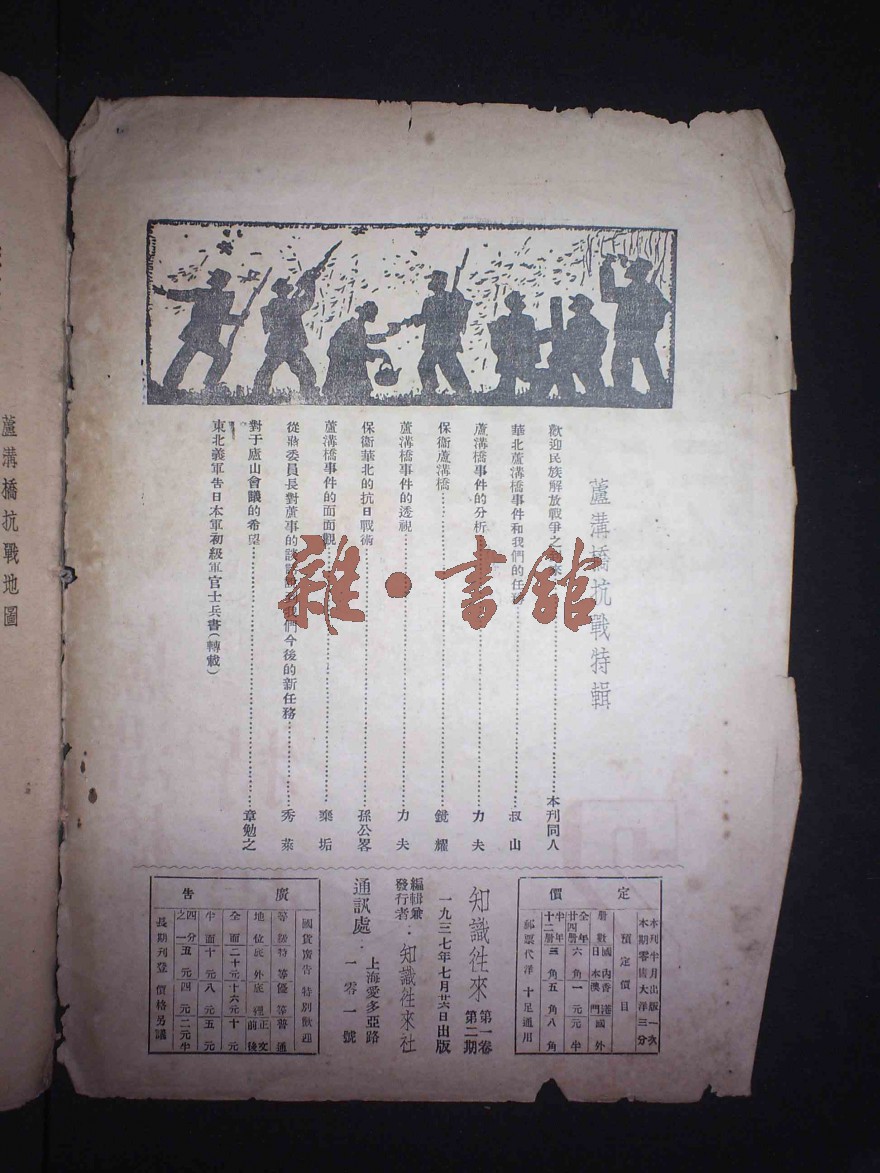 蘆溝橋抗戰特輯
歡迎民族解放戰爭之 本刊同人
華北蘆溝橋事件和我們的任 叔山
蘆溝橋事件的分析 力夫
保衛蘆溝橋 鏡耀
蘆溝橋事件的透視 力夫
保衛華北的抗日戰術 孫公畧
蘆溝橋事件的面面觀 棄垢
從蔣委員長對蘆事的談 我們今後的新任務 秀萊
對于廬山會議的希望 章勉之
東北義軍告日本軍初級軍官士兵書(轉載)
雜·書館
定價
本刊半月出版一次
本期零售大洋三分
預定價目
冊數 國內 日本 香港 澳門 國外
全年 廿四冊 六角 一元 元半
半年 十二冊 三角 五角 八角
郵票代洋 十足通用
知識往來 第一卷 第二期
一九三七年七月廿六日出版
編輯兼發行者:知識往來社
通訊處:上海愛多亞路一零一號
廣告
國貨廣告 特別歡迎
等級 特等 優等 普通
地位 底外 底裡 正文前後
全面 二十元 十六元 十元
半面 十元 八元 五元
四分之一 五元 四元 二元半
長期刊登 價格另議
蘆溝橋抗戰地圖